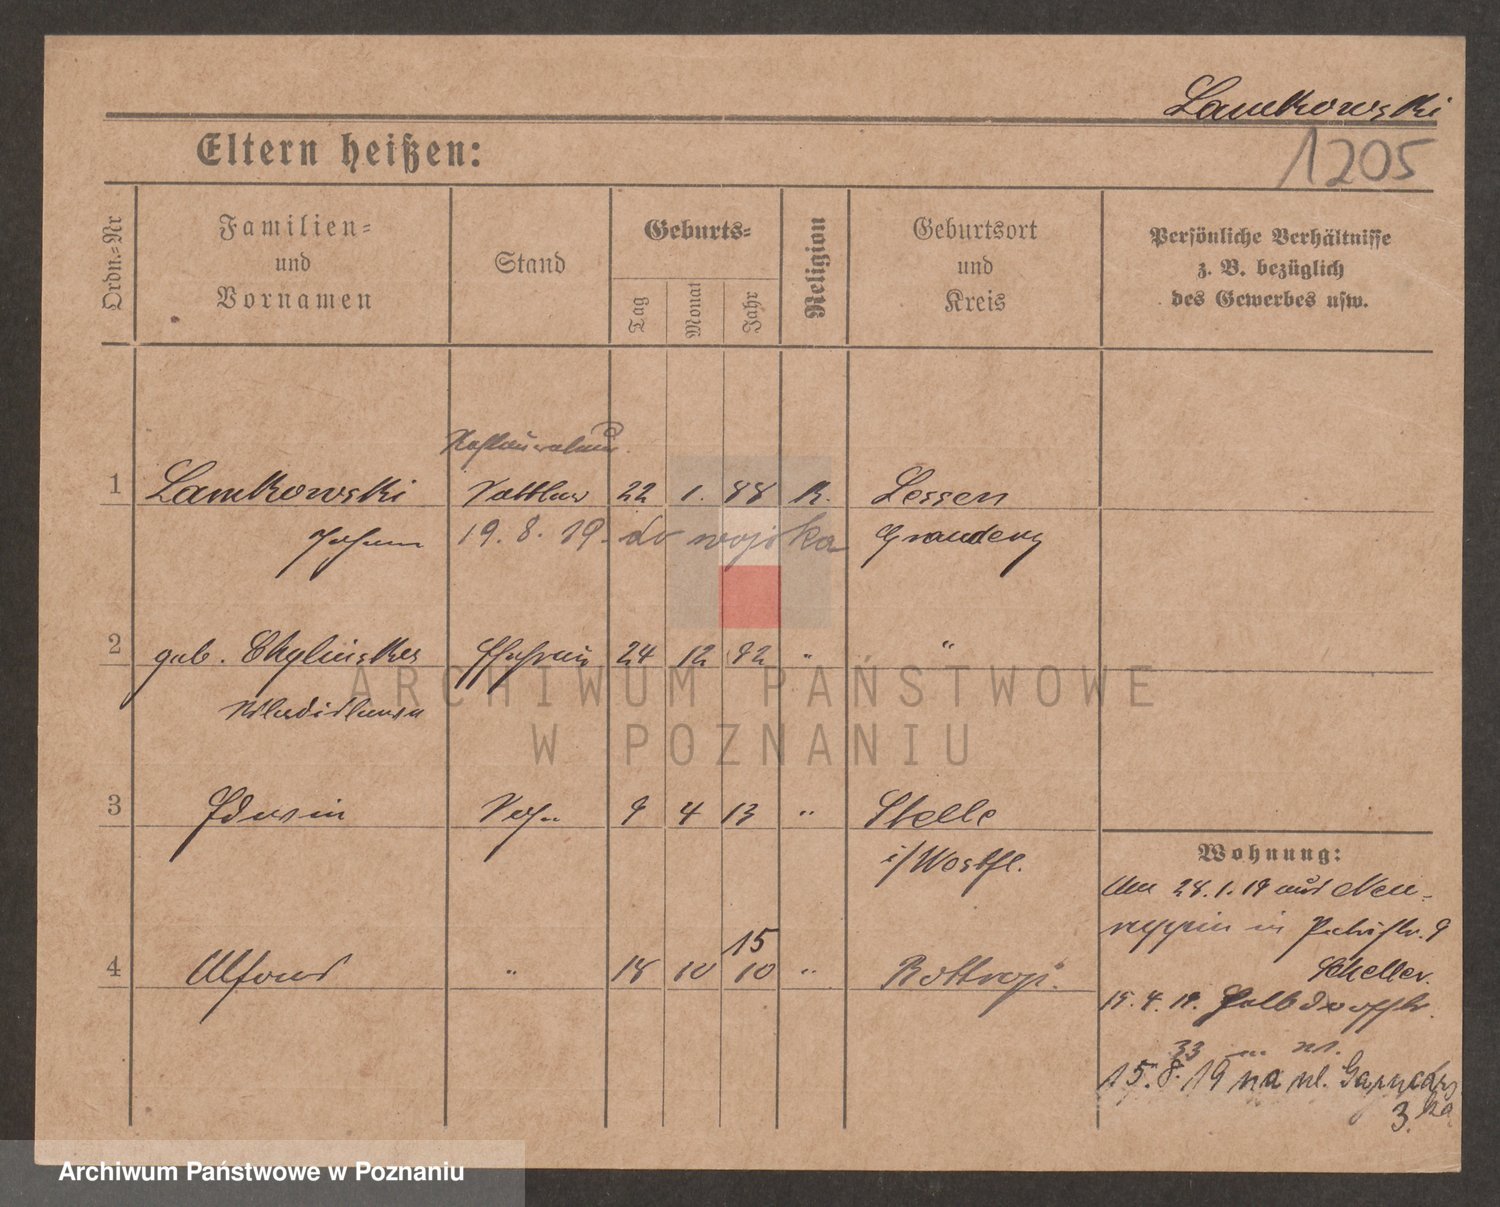 Lamkowski
1205
Eltern heißen:
Ordn.-Nr
Familien=
und
Vornamen
Stand
Geburts=
Tag
Monat
Jahr
Religion
Geburtsort
und
Kreis
Persönliche Verhältnisse
z. B. bezüglich
des Gewerbes usw.
1 Lamkowski Sattler 22 1. 88 K. Lessen
Johann 19. 8. 19. do wojska Graudenz
2 geb. Ehefrau 24 12 92 " "
Wladislawa
3 Edwin Sohn 9 4 13 " Stelle
i/Westfl.
15
4 Alfons " 18 10 10 " Bottrop.
Wohnung:
Am 28.1.19 aus Neu-
ruppin in 9
Scheller.
15. 4. 19.
33
15. 8. 19 na ul.
3.
ARCHIWUM PAŃSTWOWE
W POZNANIU
Archiwum Państwowe w Poznaniu